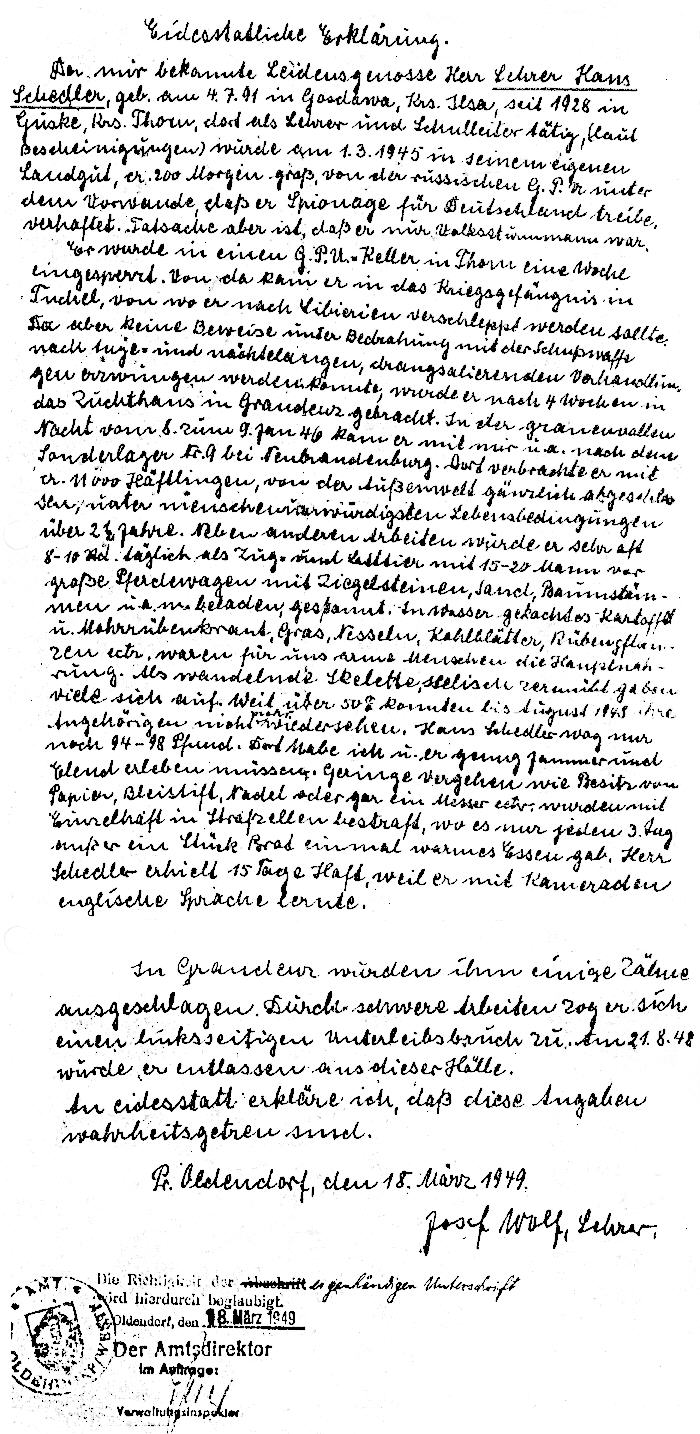 Eidesstatliche Erklärung.
Der mir bekannte Leidensgenosse Herr Lehrer Hans
Schedler, geb. am 4.7.91 in Gosdawa, Krs. Ilsa, seit 1928 in
Guske, Krs. Thorn, dort als Lehrer und Schulleiter tätig, (laut
Bescheinigungen) wurde am 1.3.1945 in seinem eigenen
Landgut, cr. 200 Morgen groß, von der russischen G.P.U unter
dem Vorwande, daß er Spionage für Deutschland treibe,
verhaftet. Tatsache aber ist, daß er nur Volkssturmmann war.
Er wurde in einen G.P.U.-Keller in Thorn eine Woche
eingesperrt. Von da kam er in das Kriegsgefängnis in
Tuchel, von wo er nach Sibierien verschleppt werden sollte.
Da aber keine Beweise unter Bedrohung mit der Schußwaffe
nach tage- und nächtelangen, drangsalierenden Verhandlun-
gen erzwungen werden konnte, wurde er nach 4 Wochen in
das Zuchthaus in Graudenz gebracht. In der grauenvollen
Nacht vom 8. zum 9. Jan 46 kam er mit mir u.a. nach dem
Sonderlager Nr. 9 bei Neubrandenburg. Dort verbrachte er mit
cr. 11000 Häftlingen, von der Außenwelt gänzlich abgeschlos
sen, unter menschenunwürdigsten Lebensbedingungen
über 2½ Jahre. Neben anderen Arbeiten wurde er sehr oft
8-10 Std. täglich als Zug- und Lasttier mit 15-20 Mann vor
große Pferdewagen mit Ziegelsteinen, Sand, Baumstäm-
men u.a.m. beladen, gespannt. In Wasser gekochtes Kartoffel
u. Mohrrübenkraut, Gras, Nesseln, Kohlblätter, Rübenpflan-
zen ectr. waren für uns arme Menschen die Hauptnah-
rung. Als wandelnde Skelette, seelisch zermürbt gaben
viele sich auf. Weit über 50% konnten bis August 1948 ihre
Angehörigen nicht mehr wiedersehen. Hans Schedler wog nur
noch 94-98 Pfund. Dort habe ich u. er genug Jammer und
Elend erleben müssen. Geringe Vergehen wie Besitz von
Papier, Bleistift, Nadel oder gar ein Messer ectr. wurden mit
Einzelhaft in Strafzellen bestraft, wo es nur jeden 3. Tag
außer ein Stück Brot einmal warmes Essen gab. Herr
Schedler erhielt 15 Tage Haft, weil er mit Kameraden
englische Sprache lernte.
In Graudenz wurden ihm einige Zähne
ausgeschlagen. Durch schwere Arbeiten zog er sich
einen linksseitigen Unterleibsbruch zu. Am 21.8.48
wurde er entlassen aus dieser Hölle.
An eidesstatt erkläre ich, daß diese Angaben
wahrheitsgetreu sind.
Pr. Oldendorf, den 18. März 1949.
Josef Wolf, Lehrer.
Die Richtigkeit der Abschrift eigenhändigen Unterschrift
wird hierdurch beglaubigt.
Oldendorf, den 18. März 1949
Der Amtsdirektor
Im Auftrage:
Verwaltungsinspektor
AMT